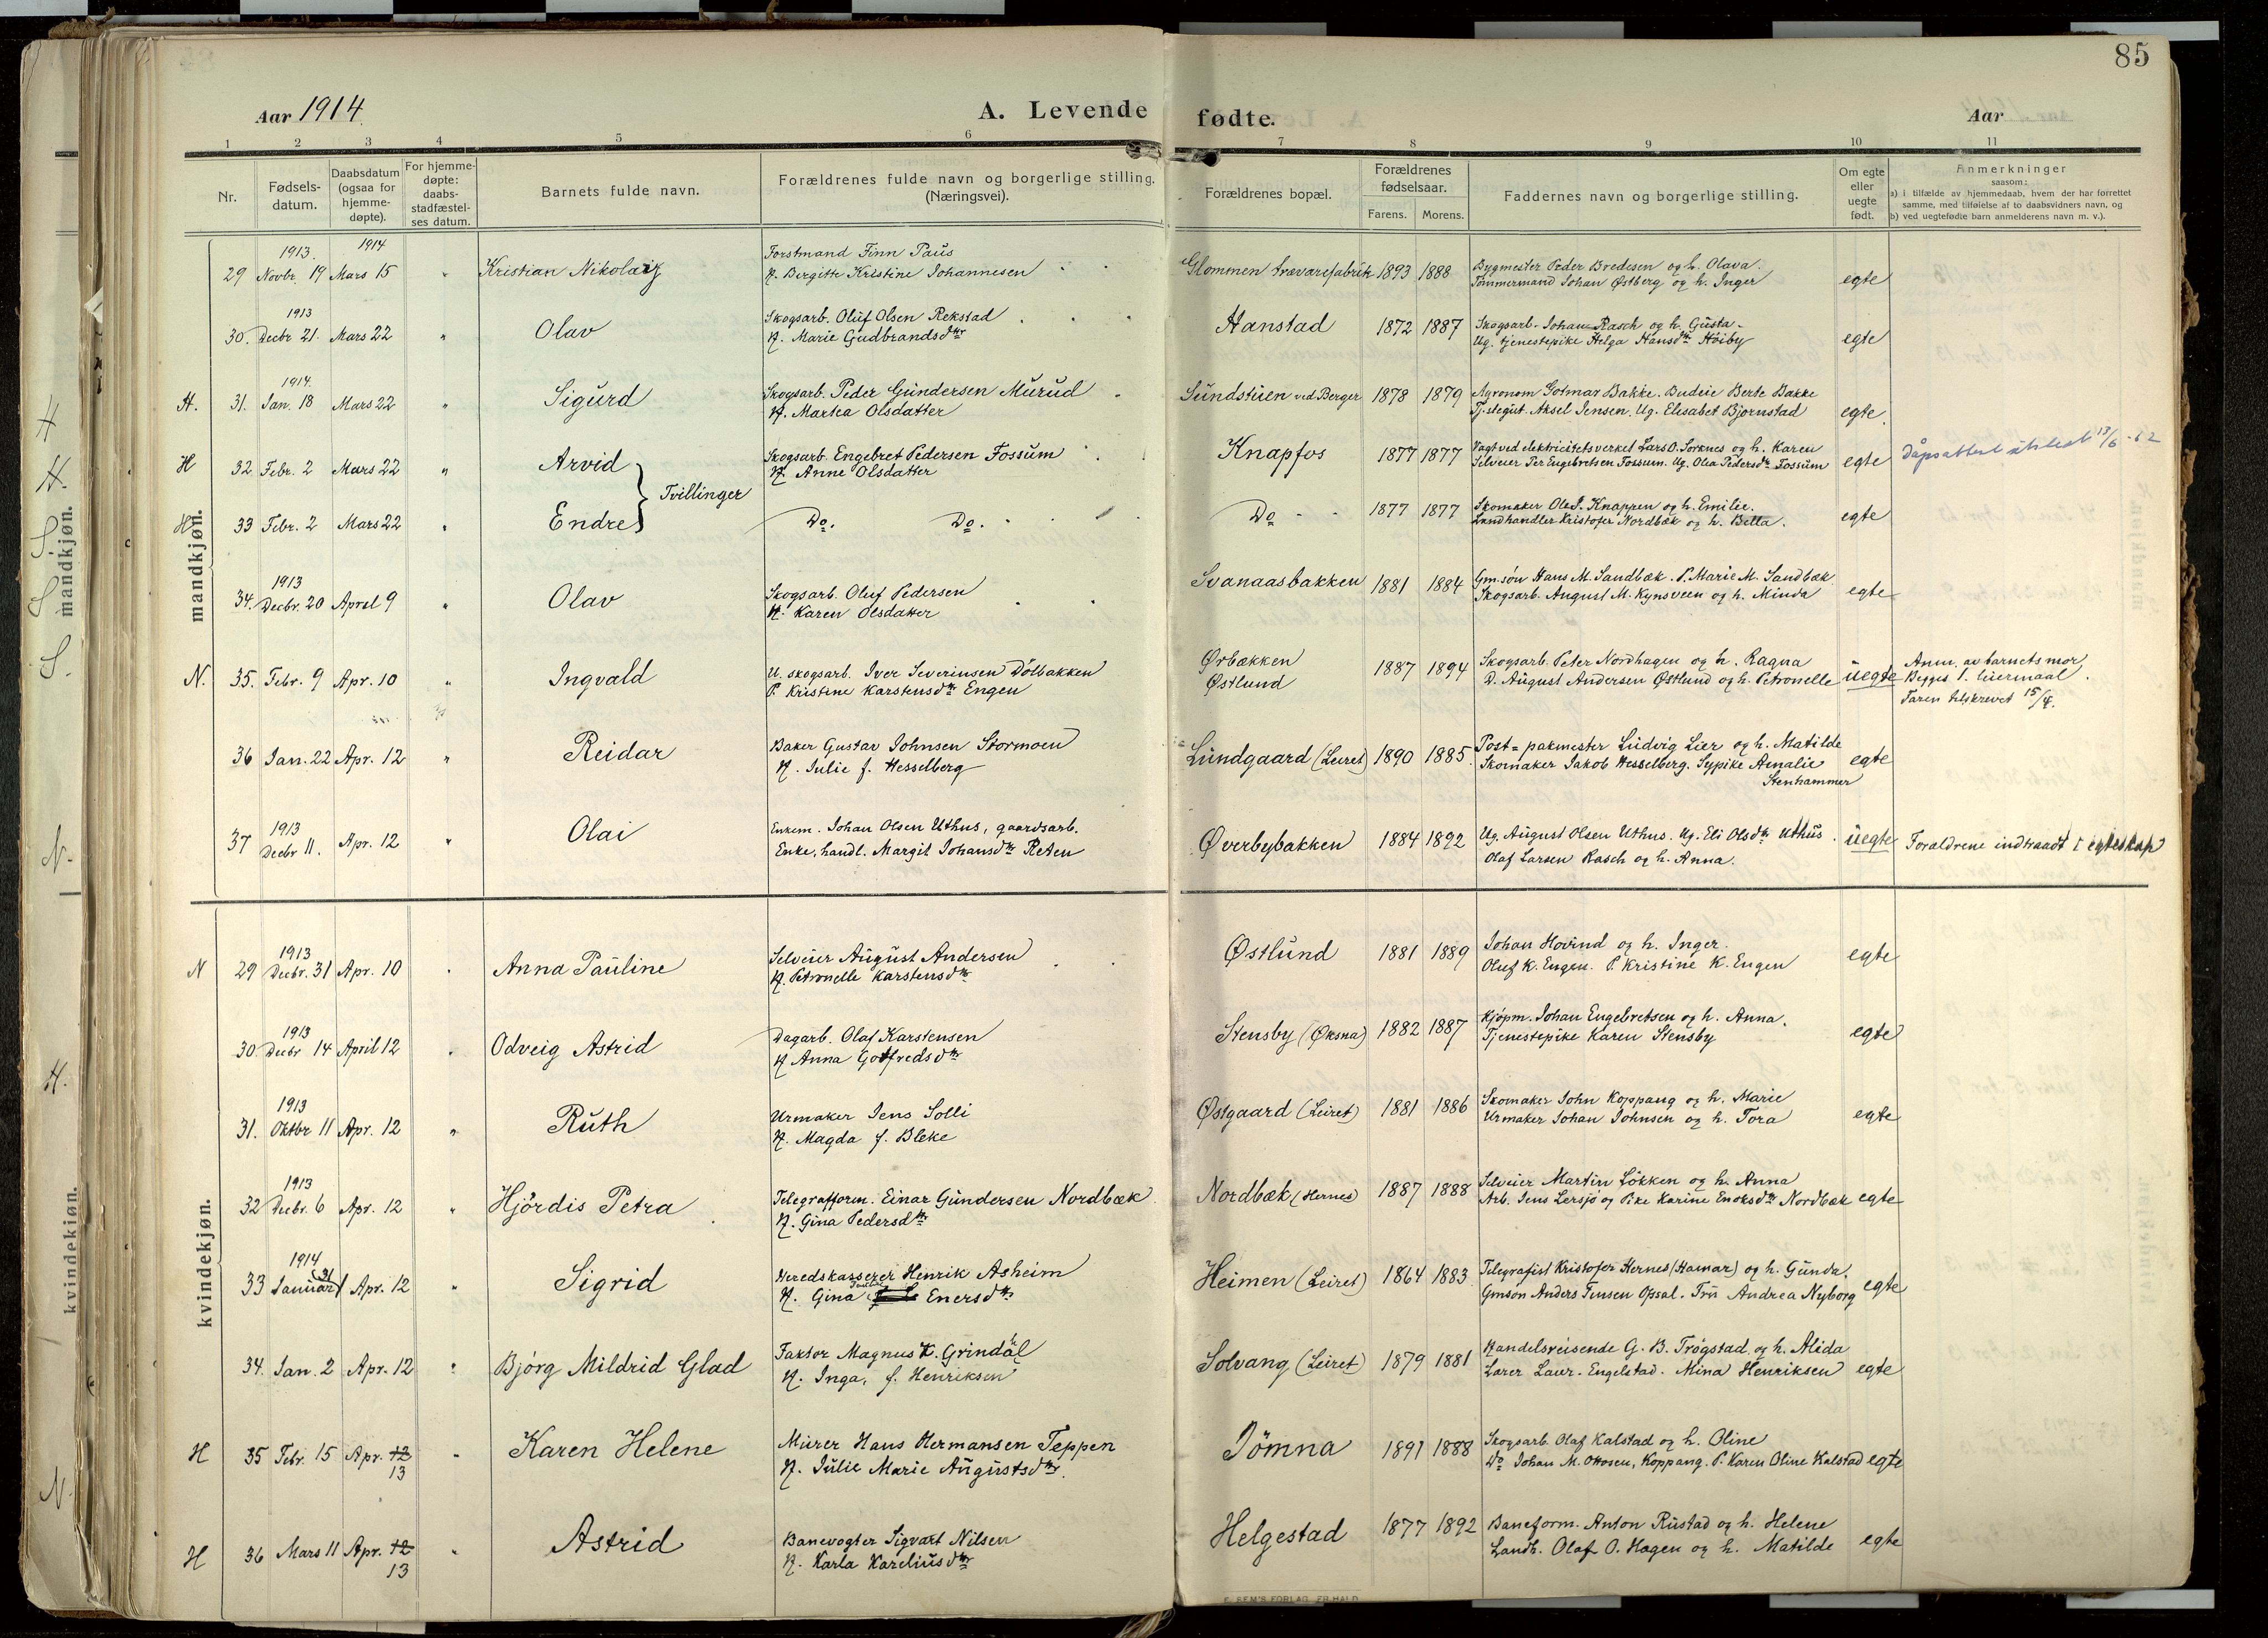 85
Aar 1914.
A. Levende fødte.
Aar
1 2 3 4 5 6 7 8 9 10 11
Nr.
Fødsels-
datum.
Daabsdatum
(ogsaa for
hjemme-
døpte).
For hjemme-
døpte:
daabs-
stadfæstel-
ses datum.
Barnets fulde navn.
Forældrenes fulde navn og borgerlige stilling.
(Næringsvei).
Forældrenes bopæl.
Forældrenes
fødselsaar.
Farens. Morens.
Faddernes navn og borgerlige stilling.
Om egte
eller
uegte
født.
Anmerkninger
saasom:
a) i tilfælde av hjemmedaab, hvem der har forrettet
samme, med tilføielse af to daabsvidners navn, og
b) ved uegtefødte barn anmelderens navn m. v.).
mandkjøn.
1913. 1914
29 Novbr. 19 Mars 15 " Kristian Nikolaij
Forstmand Finn Paus
H. Bergitte Kristine Johannesen
Glommen trævarefabrik 1893 1888
Bygmester Peder Bredesen og h. Olava.
Tømmermand Johan Østberg og h. Inger
egte
1913
30. Decbr 21. Mars 22 " Olav
Skogsarb. Oluf Olsen Rekstad
H. Marie Gudbrandsdtr
Hanstad 1872 1887
Skogsarb. Johan Rasch og h. Gusta.
Ug. tjenestepike Helga Hansdtr Høiby
egte
1914.
H. 31. Jan. 18 Mars 22 " Sigurd
Skogsarb. Peder Gundersen Murud
H. Martea Olsdatter
Sundstuen ved Berger 1878 1879
Agronom Gotmar Bakke. Budeie Berte Bakke
Tj.stegut. Aksel Jensen. Ug. Elisabet Bjornstad
egte.
H 32 Febr. 2 Mars 22 " Arvid
Tvillinger
Skogsarb. Engebret Pedersen Fossum
H. Anne Olsdatter
Knapfos 1877 1877
Vagt ved elektricitetsverket Lars O. Sorknes og h. Karen
Selveier Per Engebretsen Fossum. Ug. Olea Pedersdtr Fossum
egte
Dåpsattest utstedt 13/6-62
H 33 Febr. 2 Mars 22 " Endre
Do. Do.
Do 1877 1877
Skomaker Ole J. Knappen og h. Emilie.
Landhandler Kristofer Nordbæk og h. Betta.
egte
1913
34. Decbr. 20 April 9 " Olav
Skogsarb. Oluf Pedersen
H. Karen Olsdatter
Svanaasbakken 1881 1884
Gm.søn Hans M. Sandbæk. P. Marie M. Sandbæk
Skogsarb. August M. Kynsveen og h. Minda
egte
N. 35. Febr. 9 Apr. 10 " Ingvald
U. skogsarb. Iver Severinsen Dølbakken
P. Kristine Karstensdtr Engen
Ørbækken
Østlund
1887 1894
Skogsarb. Peter Nordhagen og h. Ragna
D. August Andersen Østlund og h. Petronelle
uegte
Anm. av barnets mor
Begges 1. leiermaal.
Faren tilskrevet 15/4.
36 Jan. 22 Apr. 12 " Reidar
Baker Gustav Johnsen Stormoen
H. Julie f. Hesselberg
Lundgaard (Leiret) 1890 1885.
Post=pakmester Ludvig Lier og h. Matilde
Skomaker Jakob Hesselberg. Sypike Amalie
Stenhammer
egte
1913
37 Decbr 11. Apr. 12 " Olai
Enkem. Johan Olsen Uthus, gaardsarb.
Enke, handl. Margit Johansdtr Reten
Øverbybakken 1884 1892
Ug. August Olsen Uthus. Ug. Eli Olsdtr Uthus.
Olaf Larsen Rasch og h. Anna.
uegte
Forældrene indtraadt i egteskap
kvindekjøn.
1913
N 29 Decbr. 31 Apr. 10 Anna Pauline
Selveier August Andersen
H. Petronelle Karstensdtr
Østlund 1881 1889
Johan Hovind og h. Inger.
Oluf K. Engen. P. Kristine K. Engen
egte
1913
30 Decbr 14 April 12 Odveig Astrid
Dagarb. Olaf Karstensen
H Anna Gotfredsdtr
Stensby (Øksna) 1882 1887
Kjøpm. Johan Engebretsen og h. Anna.
Tjenestepike Karen Stensby
egte
1913
31. Oktbr 11 Apr. 12 " Ruth
Urmaker Jens Solli
H. Magda f. Bleke
Østgaard (Leiret) 1881 1886
Skomaker John Koppang og h. Marie
Urmaker Johan Johnsen og h. Tora
egte
1913
32 Decbr. 6 Apr. 12 " Hjördis Petra
Telegrafform. Einar Gundersen Nordbæk
H. Gina Pedersdtr
Nordbæk (Hernes) 1887 1888
Selveier Martin Løkken og h. Anna
Arb. Jens Lersjø og Pike Karine Enoksdtr Nordbæk
egte
1914
33 Januar 31 Apr. 12 " Sigrid
Heredskasserer Henrik Asheim
H. Gina Enersdtr
Heimen (Leiret) 1864 1883
Telegrafist Kristofer Hernes (Hamar) og h. Gunda.
Gmson Anders Jensen Opsal. Frü Andrea Nyborg
egte
34. Jan. 2 Apr. 12 " Bjørg Mildrid Glad
Faktor Magnus K. Grindahl
H. Inga, f. Henriksen
Solvang (Leiret) 1879 1881
Handelsreisende G. B. Trøgstad og h. Alida
Lærer Laur. Engelstad. Mina Henriksen
egte
H 35 Febr. 15 Apr. 12 13 " Karen Helene
Murer Hans Hermansen Teppen
H. Julie Marie Augustsdtr.
Jømna 1891 1888
Skogsarb. Olaf Kalstad og h. Oline
Do Johan M. Ottosen, Koppang. P. Karen Oline Kalstad
egte
H 36 Mars 11 Apr. 12 13 " Astrid
Banevogter Sigvart Nilsen
H. Karla Kareliusdtr
Helgestad 1877 1892
Baneform. Anton Rustad og h. Helene
Landh. Olaf O. Hagen og h. Matilde
egte
mandkjøn.
kvindekjøn.
H
H.
S
S
S.
N.
H.
N.